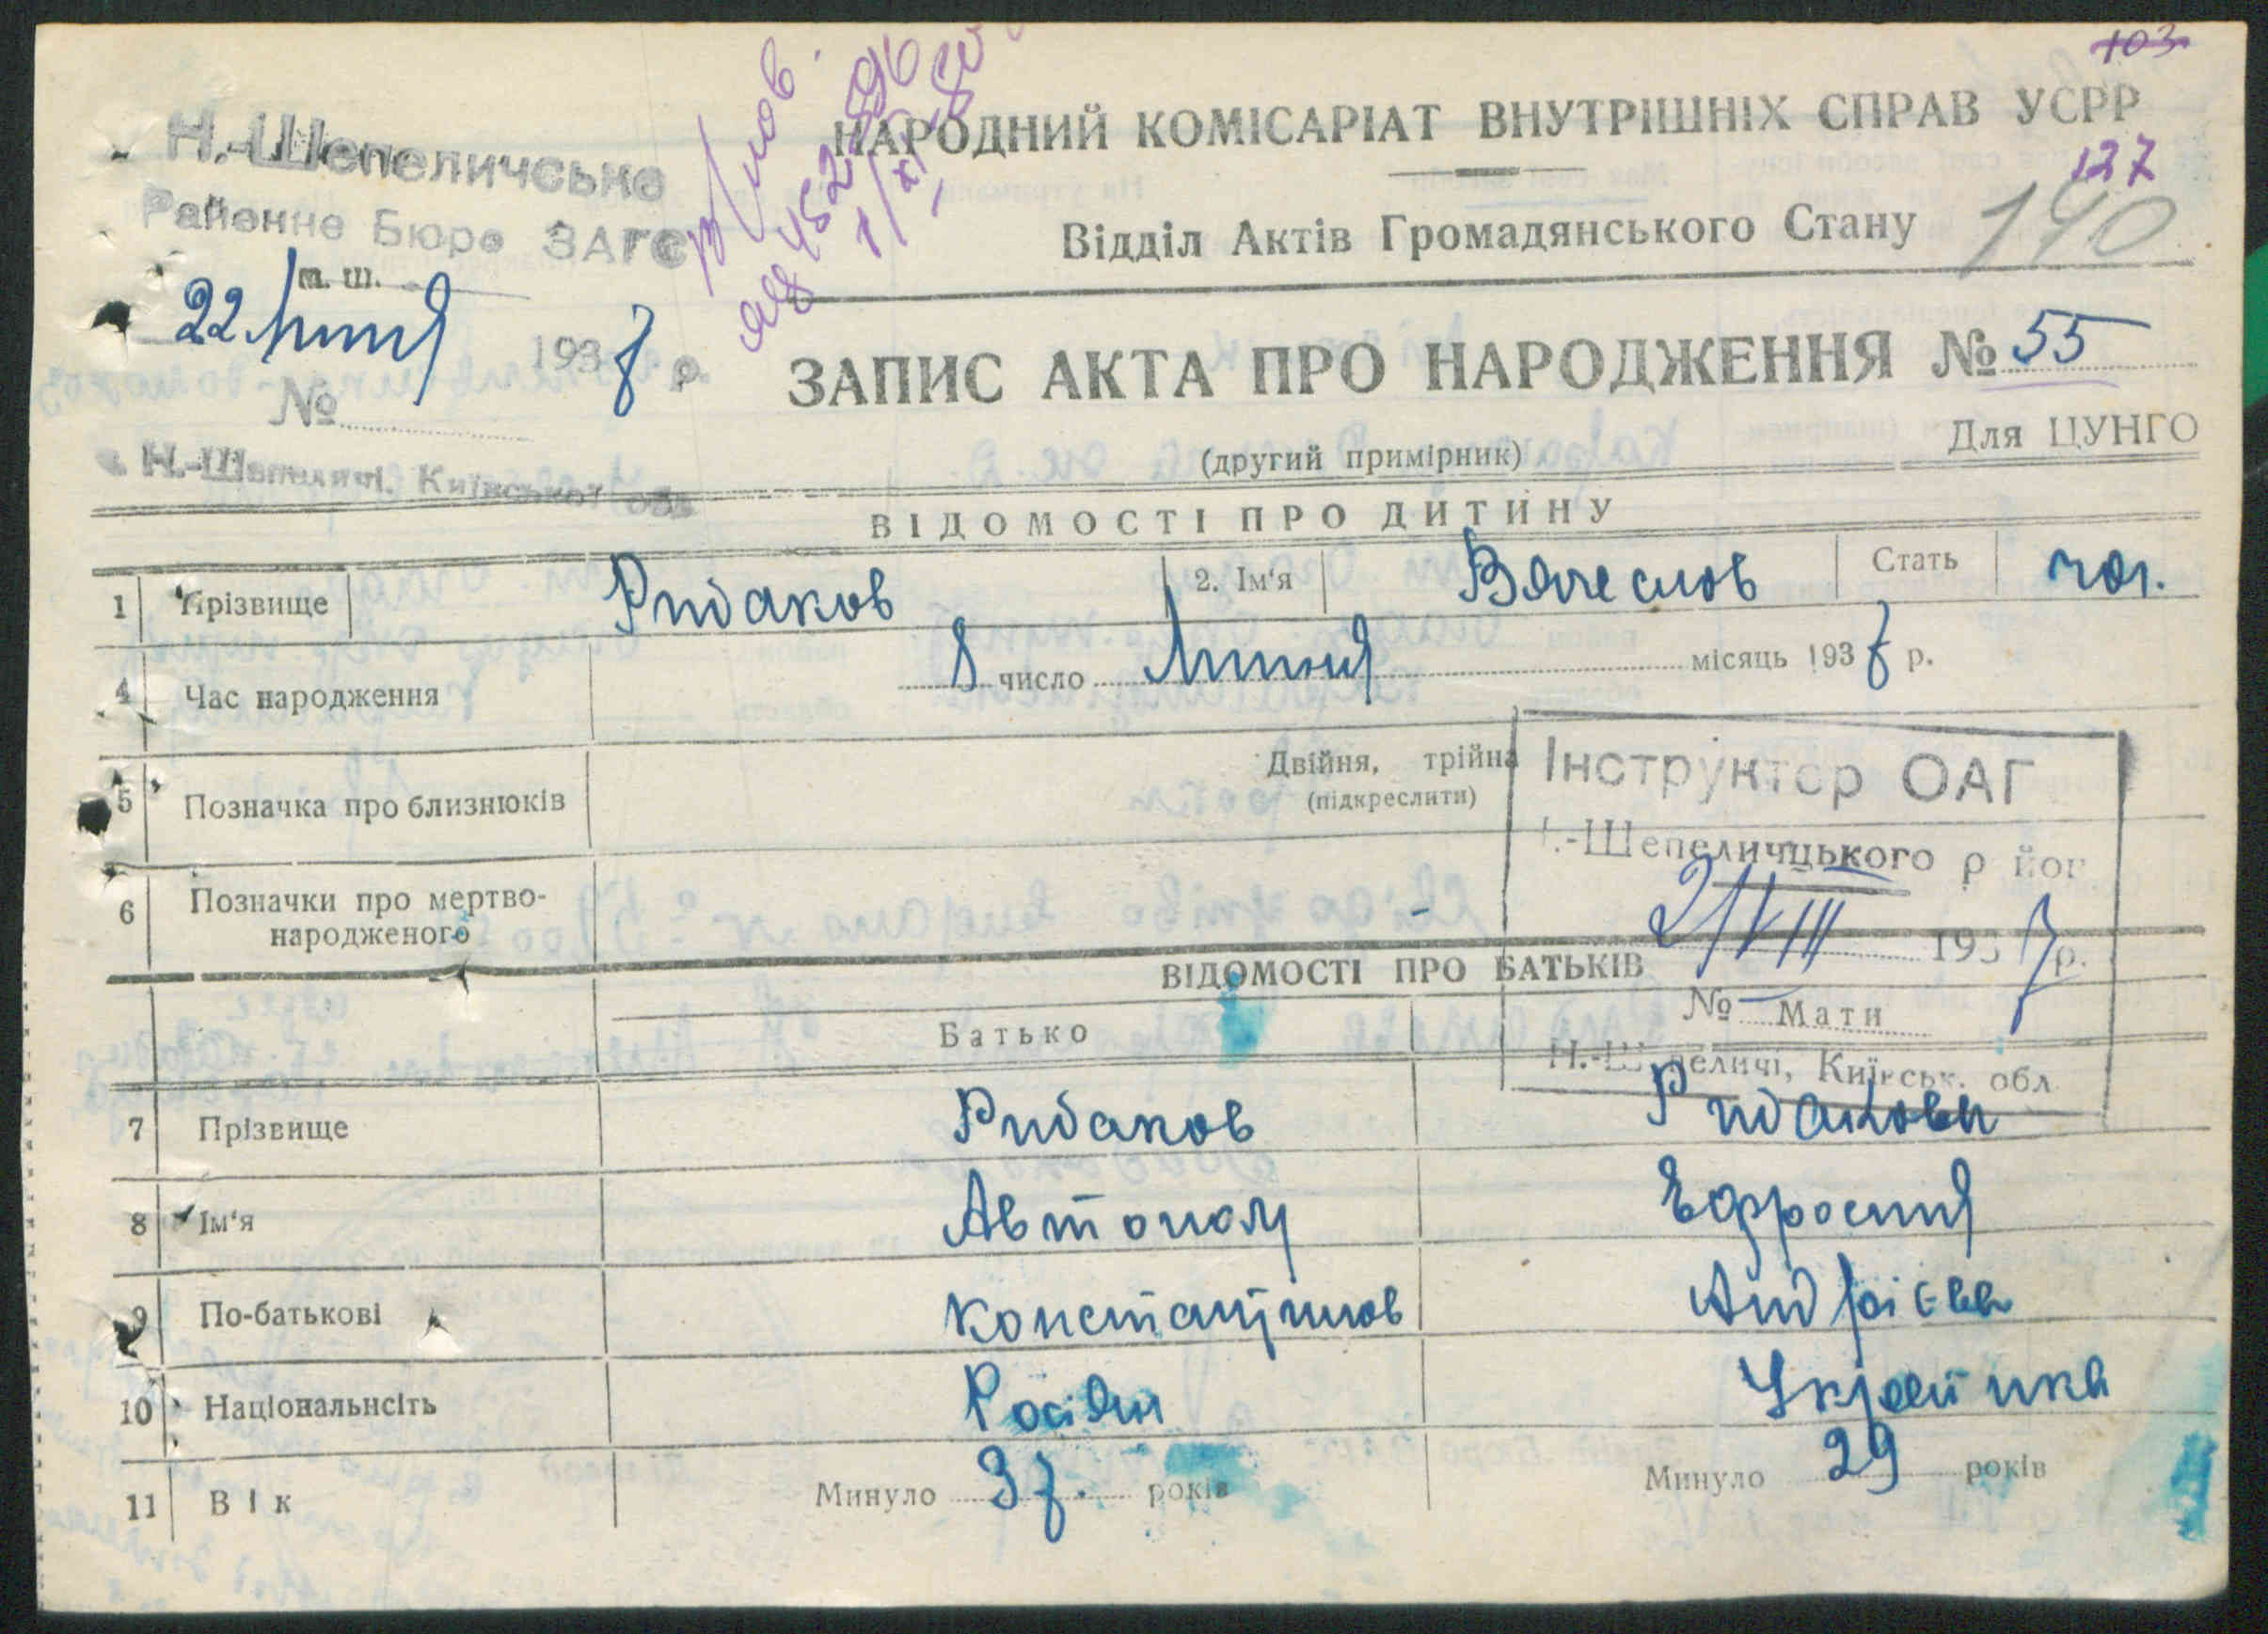 103
НАРОДНИЙ КОМІСАРІАТ ВНУТРІШНІХ СПРАВ УСРР
127
Відділ Актів Громадянського Стану
190
Н.-Шепеличське
Районне Бюро ЗАГС
п. ш.
22 липня 1937 р.
№
с. Н.-Шепеличі, Київської обл.
пов.
452596
ЗАПИС АКТА ПРО НАРОДЖЕННЯ № 55
(другий примірник)
Для ЦУНГО
ВІДОМОСТІ ПРО ДИТИНУ
1 Прізвище Рибаков 2. Ім'я Вячеслов Стать чол.
4 Час народження 8 число Липня місяць 1937 р.
5 Позначка про близнюків Двійня, трійня
(підкреслити)
6 Позначки про мертво-
народженого -
Інструктор ОАГ
Н.-Шепеличцького район
21/VIII 1937 р.
№
Н.-Шепеличі, Київськ. обл
ВІДОМОСТІ ПРО БАТЬКІВ
Батько Мати
7 Прізвище Рибаков Рибакова
8 Ім'я Автоном Ефросиня
9 По-батькові Константинов Андрієвн
10 Національнсіть Росіян Українка
11 Вік Минуло 37. років Минуло 29 років